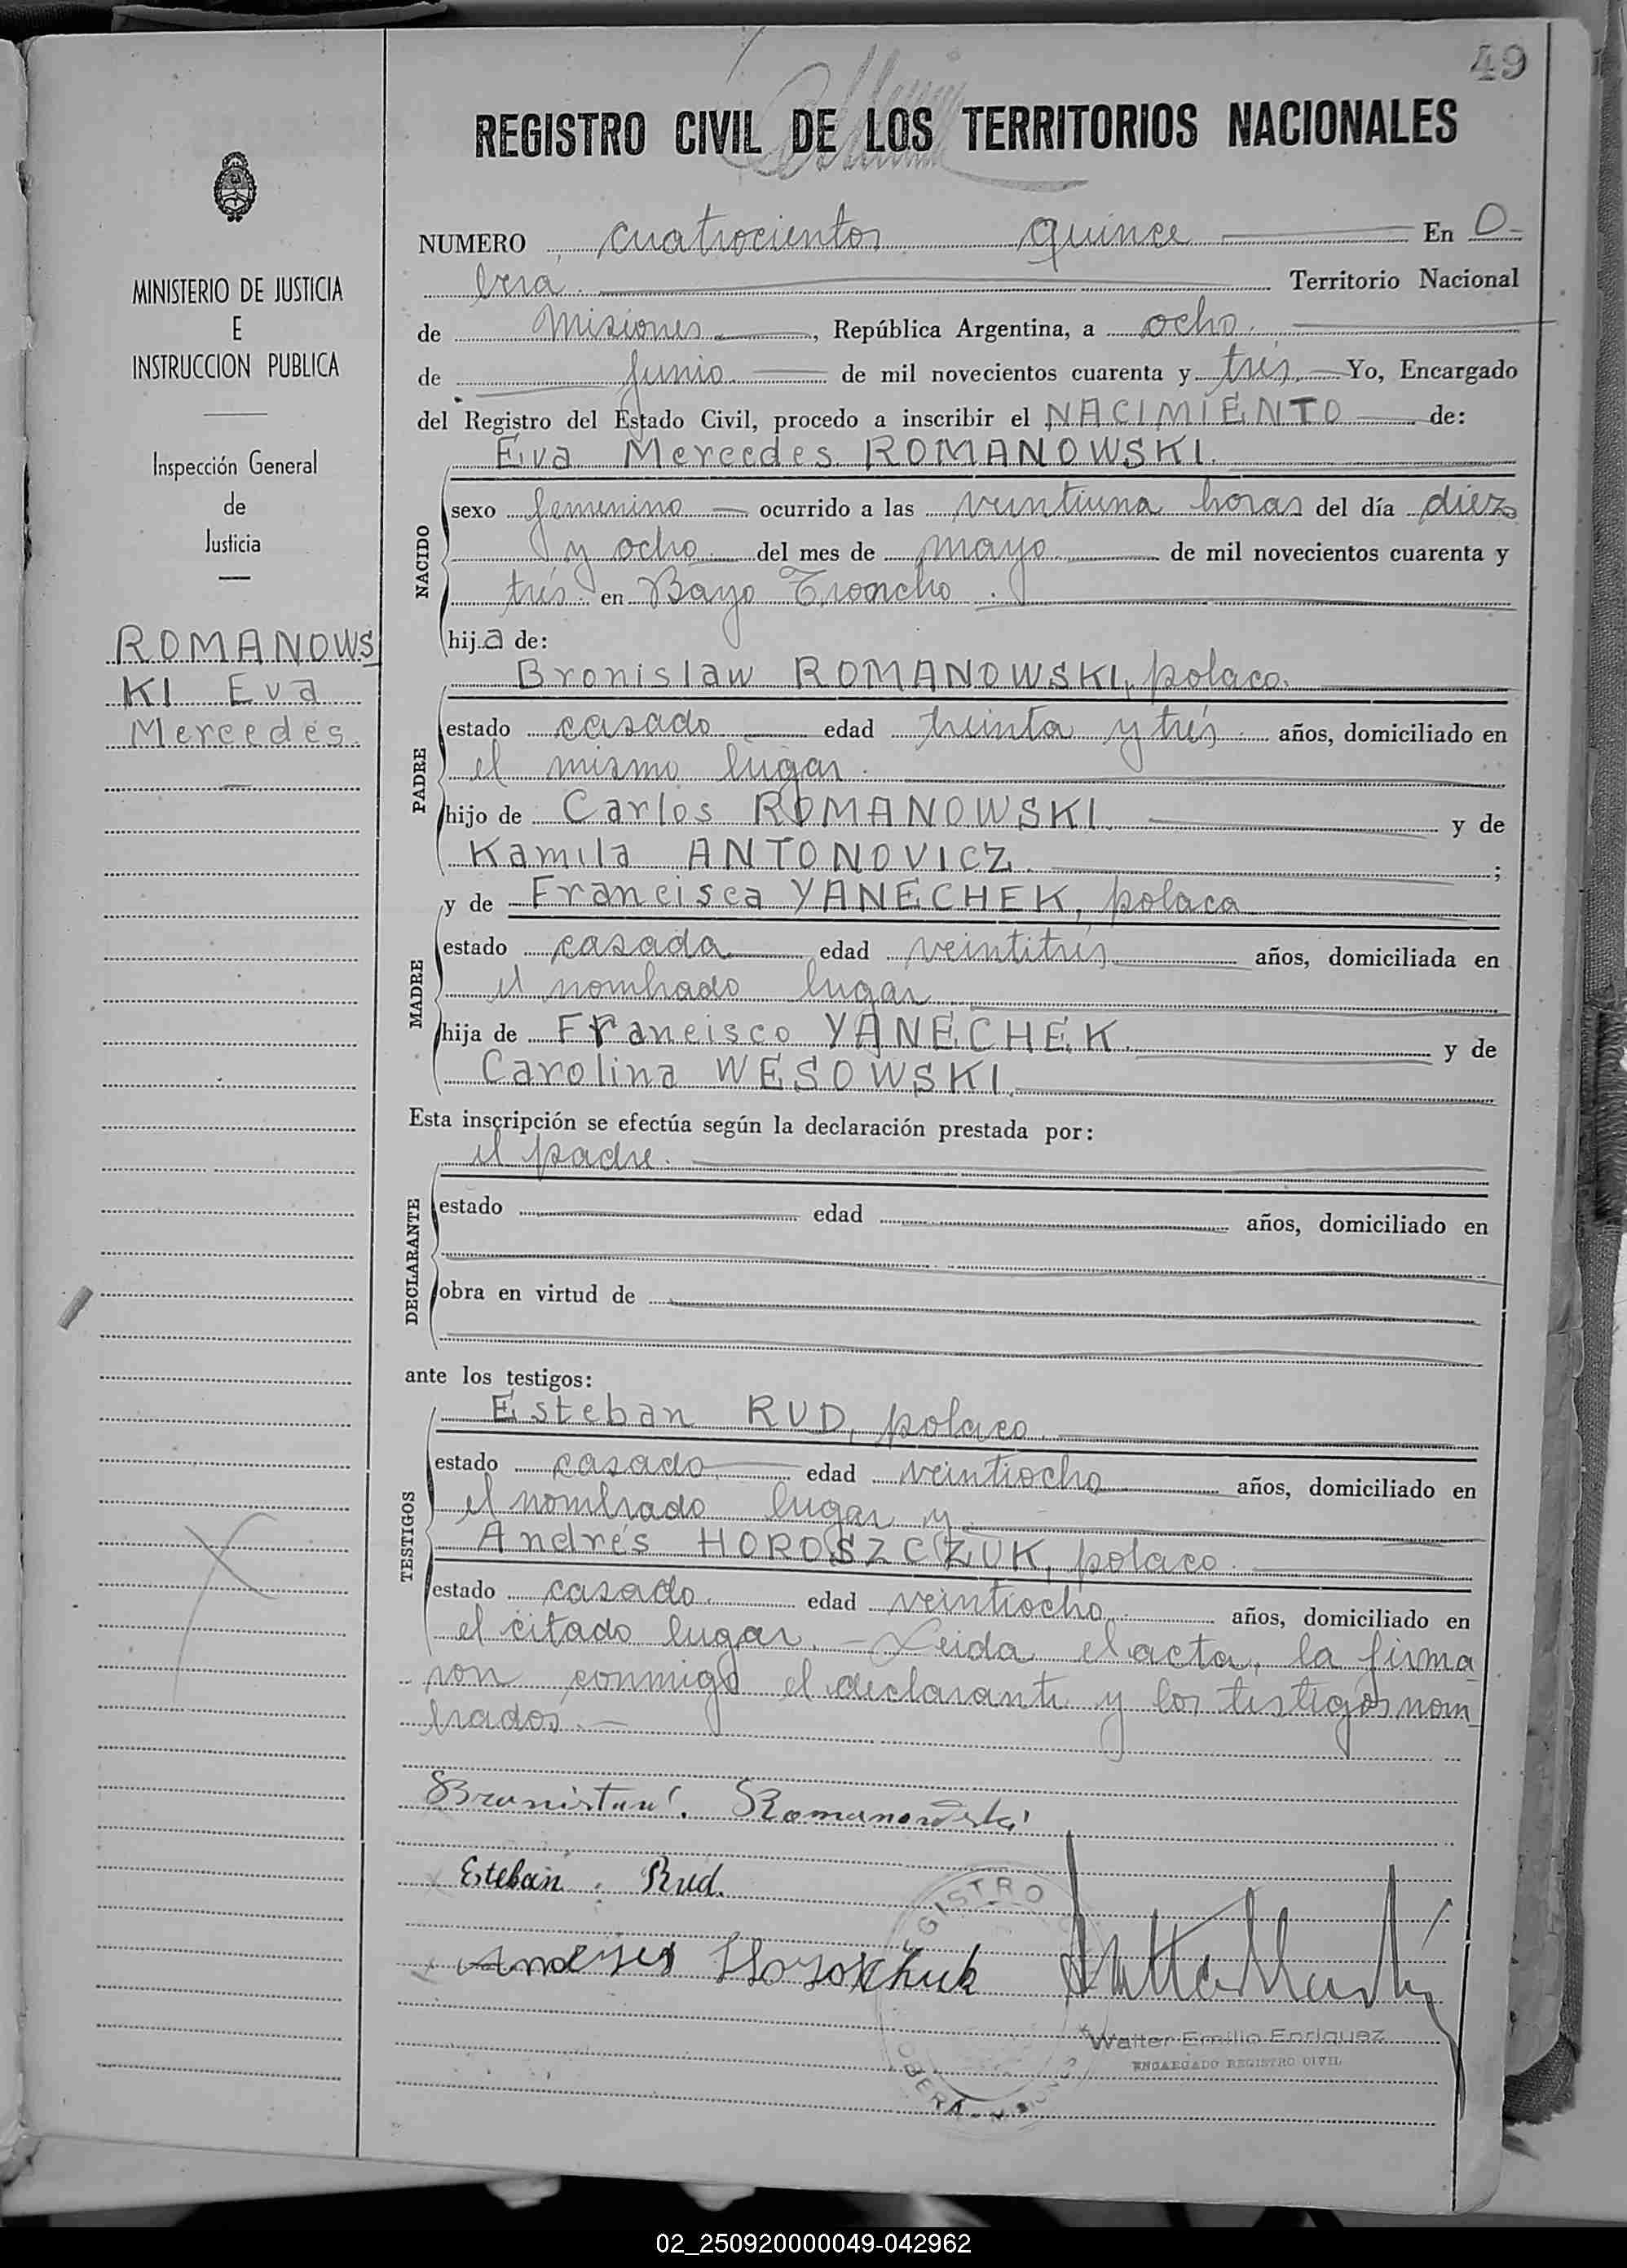 49
REGISTRO CIVIL DE LOS TERRITORIOS NACIONALES
MINISTERIO DE JUSTICIA
E
INSTRUCCION PUBLICA
Inspección General
de
Justicia
ROMANOWS
KI Eva
Mercedes.
NUMERO cuatrocientos quince En O-
berá. Territorio Nacional
de Misiones, República Argentina, a ocho.
de Junio. de mil novecientos cuarenta y trés. Yo, Encargado
del Registro del Estado Civil, procedo a inscribir el NACIMIENTO de:
Eva Mercedes ROMANOWSKI.
NACIDO
sexo femenino ocurrido a las veintiuna horas del día diez
y ocho del mes de mayo de mil novecientos cuarenta y
trés. en Bayo Troncho.
hija de:
Bronislaw ROMANOWSKI, polaco.
PADRE
estado casado edad treinta y trés años, domiciliado en
el mismo lugar.
hijo de Carlos ROMANOWSKI. y de
Kamila ANTONOVICZ. ;
y de Francisca YANECHEK, polaca
MADRE
estado casada edad veintitrés años, domiciliada en
el nombrado lugar
hija de Francisco YANECHEK. y de
Carolina WESOWSKI.
Esta inscripción se efectúa según la declaración prestada por:
el padre.
DECLARANTE
estado edad años, domiciliado en
obra en virtud de
ante los testigos:
Esteban RUD, polaco.
TESTIGOS
estado casado edad veintiocho años, domiciliado en
el nombrado lugar y
Andrés HOROSZCZUK, polaco.
estado casado. edad veintiocho. años, domiciliado en
el citado lugar. - Leida el acta, la firma
ron conmigo el declarante y los testigos nom
brados.-
Romanowski
Esteban. Rud.
REGISTRO
OBERÁ
Walter Emilio Enriquez
ENCARGADO REGISTRO CIVIL
02_250920000049-042962